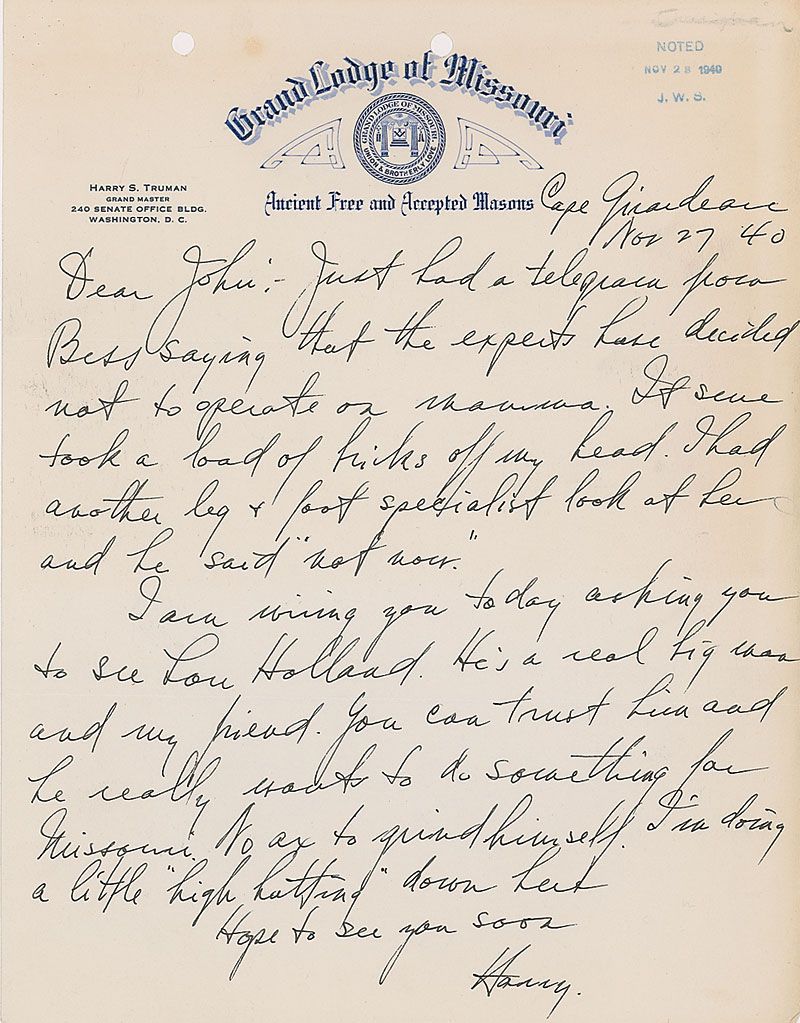 NOTED
NOV 28 1940
J. W. S.
Grand Lodge of Missouri
GRAND LODGE OF MISSOURI
UNION & BROTHERLY LOVE
HARRY S. TRUMAN
GRAND MASTER
240 SENATE OFFICE BLDG.
WASHINGTON, D. C.
Ancient Free and Accepted Masons
Cape Girardeau
Nov 27 40
Dear John:- Just had a telegram from
Bess saying that the experts have decided
not to operate on mamma. It sure
took a load of bricks off my head. I had
another leg & foot specialist look at her
and he said "not now."
I am wiring you today asking you
to see Lou Holland. He's a real big man
and my friend. You can trust him and
he really wants to do something for
Missouri. No ax to grind himself. I'm doing
a little "high hatting" down here
Hope to see you soon
Harry.